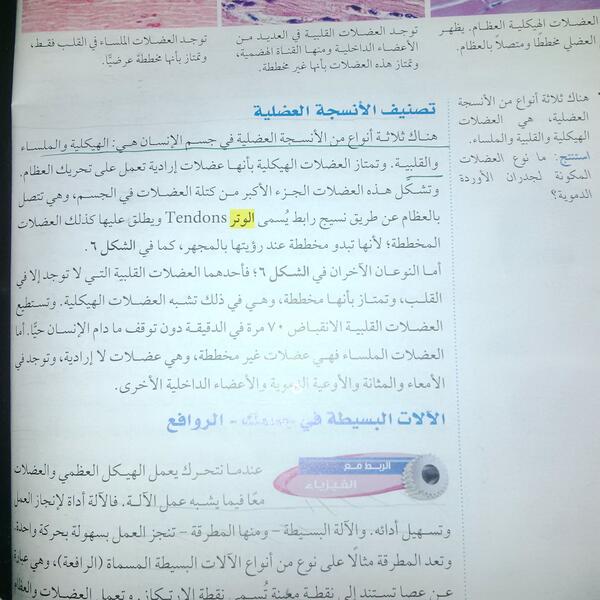 العضلات الهيكلية العظام. يظهر
العضلي مخططًا ومتصلاً بالعظام.
توجد العضلات القلبية في العديد من
الأعضاء الداخلية ومنها القناة الهضمية،
وتمتاز هذه العضلات بأنها غير مخططة.
توجد العضلات الملساء في القلب فقط،
وتمتاز بأنها مخططة عرضيًّا.
هناك ثلاثة أنواع من الأنسجة
العضلية، هي العضلات
الهيكلية والقلبية والملساء.
استنتج: ما نوع العضلات
المكونة لجدران الأوردة
الدموية؟
تصنيف الأنسجة العضلية
هناك ثلاثة أنواع من الأنسجة العضلية في جسم الإنسان هي: الهيكلية والملساء
والقلبية. وتمتاز العضلات الهيكلية بأنها عضلات إرادية تعمل على تحريك العظام.
وتشكل هذه العضلات الجزء الأكبر من كتلة العضلات في الجسم، وهي تتصل
بالعظام عن طريق نسيج رابط يُسمى الوتر Tendons ويطلق عليها كذلك العضلات
المخططة؛ لأنها تبدو مخططة عند رؤيتها بالمجهر، كما في الشكل ٦.
أما النوعان الآخران في الشكل ٦؛ فأحدهما العضلات القلبية التي لا توجد إلا في
القلب، وتمتاز بأنها مخططة، وهي في ذلك تشبه العضلات الهيكلية. وتستطيع
العضلات القلبية الانقباض ٧٠ مرة في الدقيقة دون توقف ما دام الإنسان حيًّا. أما
العضلات الملساء فهي عضلات غير مخططة، وهي عضلات لا إرادية، وتوجد في
الأمعاء والمثانة والأوعية الدموية والأعضاء الداخلية الأخرى.
الآلات البسيطة في جسمك - الروافع
الربط مع
الفيزياء
عندما نتحرك يعمل الهيكل العظمي والعضلات
معًا فيما يشبه عمل الآلة. فالآلة أداة لإنجاز العمل
وتسهيل أدائه. والآلة البسيطة - ومنها المطرقة - تنجز العمل بسهولة بحركة واحدة.
وتعد المطرقة مثالًا على نوع من أنواع الآلات البسيطة المسماة (الرافعة)، وهي عبارة
عن عصا تستند إلى نقطة معينة تُسمى نقطة الارتكاز. وتعمل العضلات والعظام